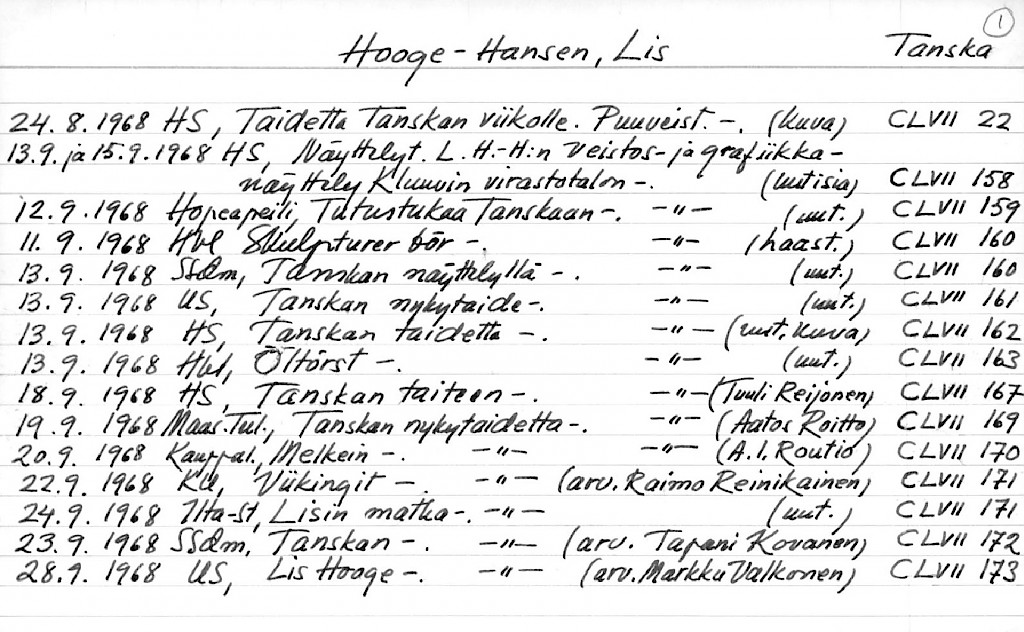 1
Hooge-Hansen, Lis Tanska
24.8.1968 HS, Taidetta Tanskan viikolle. Puuveist. -. (kuva) CLVII 22
13.9. ja 15.9.1968 HS, Näyttelyt. L.H.-H:n veistos- ja grafiikka-
näyttely Kluuvin virastotalon -. (uutisia) CLVII 158
12.9.1968 Hopeapeili, Tutustukaa Tanskaan -. -"- (uut.) CLVII 159
11.9.1968 Hbl Skulpturer bör -. -"- (haast.) CLVII 160
13.9.1968 SSdm, Tanskan näyttelyllä -. -"- (uut.) CLVII 160
13.9.1968 US, Tanskan nykytaide -. -"- (uut.) CLVII 161
13.9.1968 HS, Tanskan taidetta -. -"- (uut, kuva) CLVII 162
13.9.1968 Hbl, Öltörst -. -"- (uut.) CLVII 163
18.9.1968 HS, Tanskan taiteen -. -"- (Tuuli Reijonen) CLVII 167
19.9.1968 Maas.Tul., Tanskan nykytaidetta -. -"- (Aatos Roitto) CLVII 169
20.9.1968 Kauppal., Melkein -. -"- -"- (A.I. Routio) CLVII 170
22.9.1968 KU, Viikingit -. -"- (arv. Raimo Reinikainen) CLVII 171
24.9.1968 Ilta-S, Lisin matka -. -"- (uut.) CLVII 171
23.9.1968 SSdm, Tanskan -. -"- (arv. Tapani Kovanen) CLVII 172
28.9.1968 US, Lis Hooge -. -"- (arv. Markku Valkonen) CLVII 173